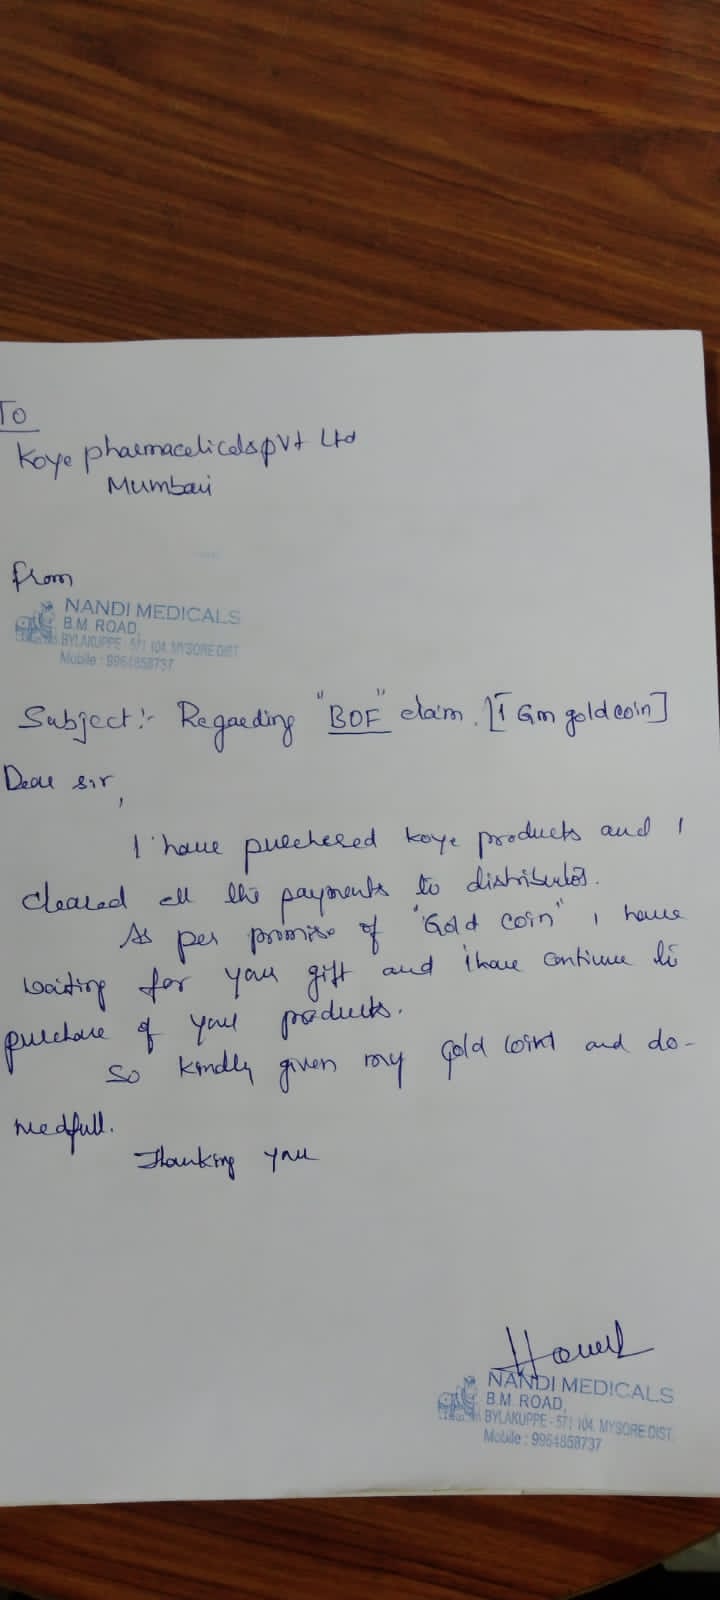 To
Koye pharmacelicals pvt Ltd
Mumbai
from
NANDI MEDICALS
B.M. ROAD,
BYLAKUPPE - 571 104, MYSORE DIST.
Mobile : 9964858737
Subject :- Regarding "BOF" claim. [1 Gm gold coin]
Dear sir,
I have purchesed koye products and I
cleared all the payments to distributor.
As per promise of "Gold coin" I have
waiting for your gift and I have continue to
purchase of your products.
So kindly given my gold coin and do-
needfull.
Thanking you
NANDI MEDICALS
B.M. ROAD,
BYLAKUPPE - 571 104, MYSORE DIST.
Mobile : 9964858737